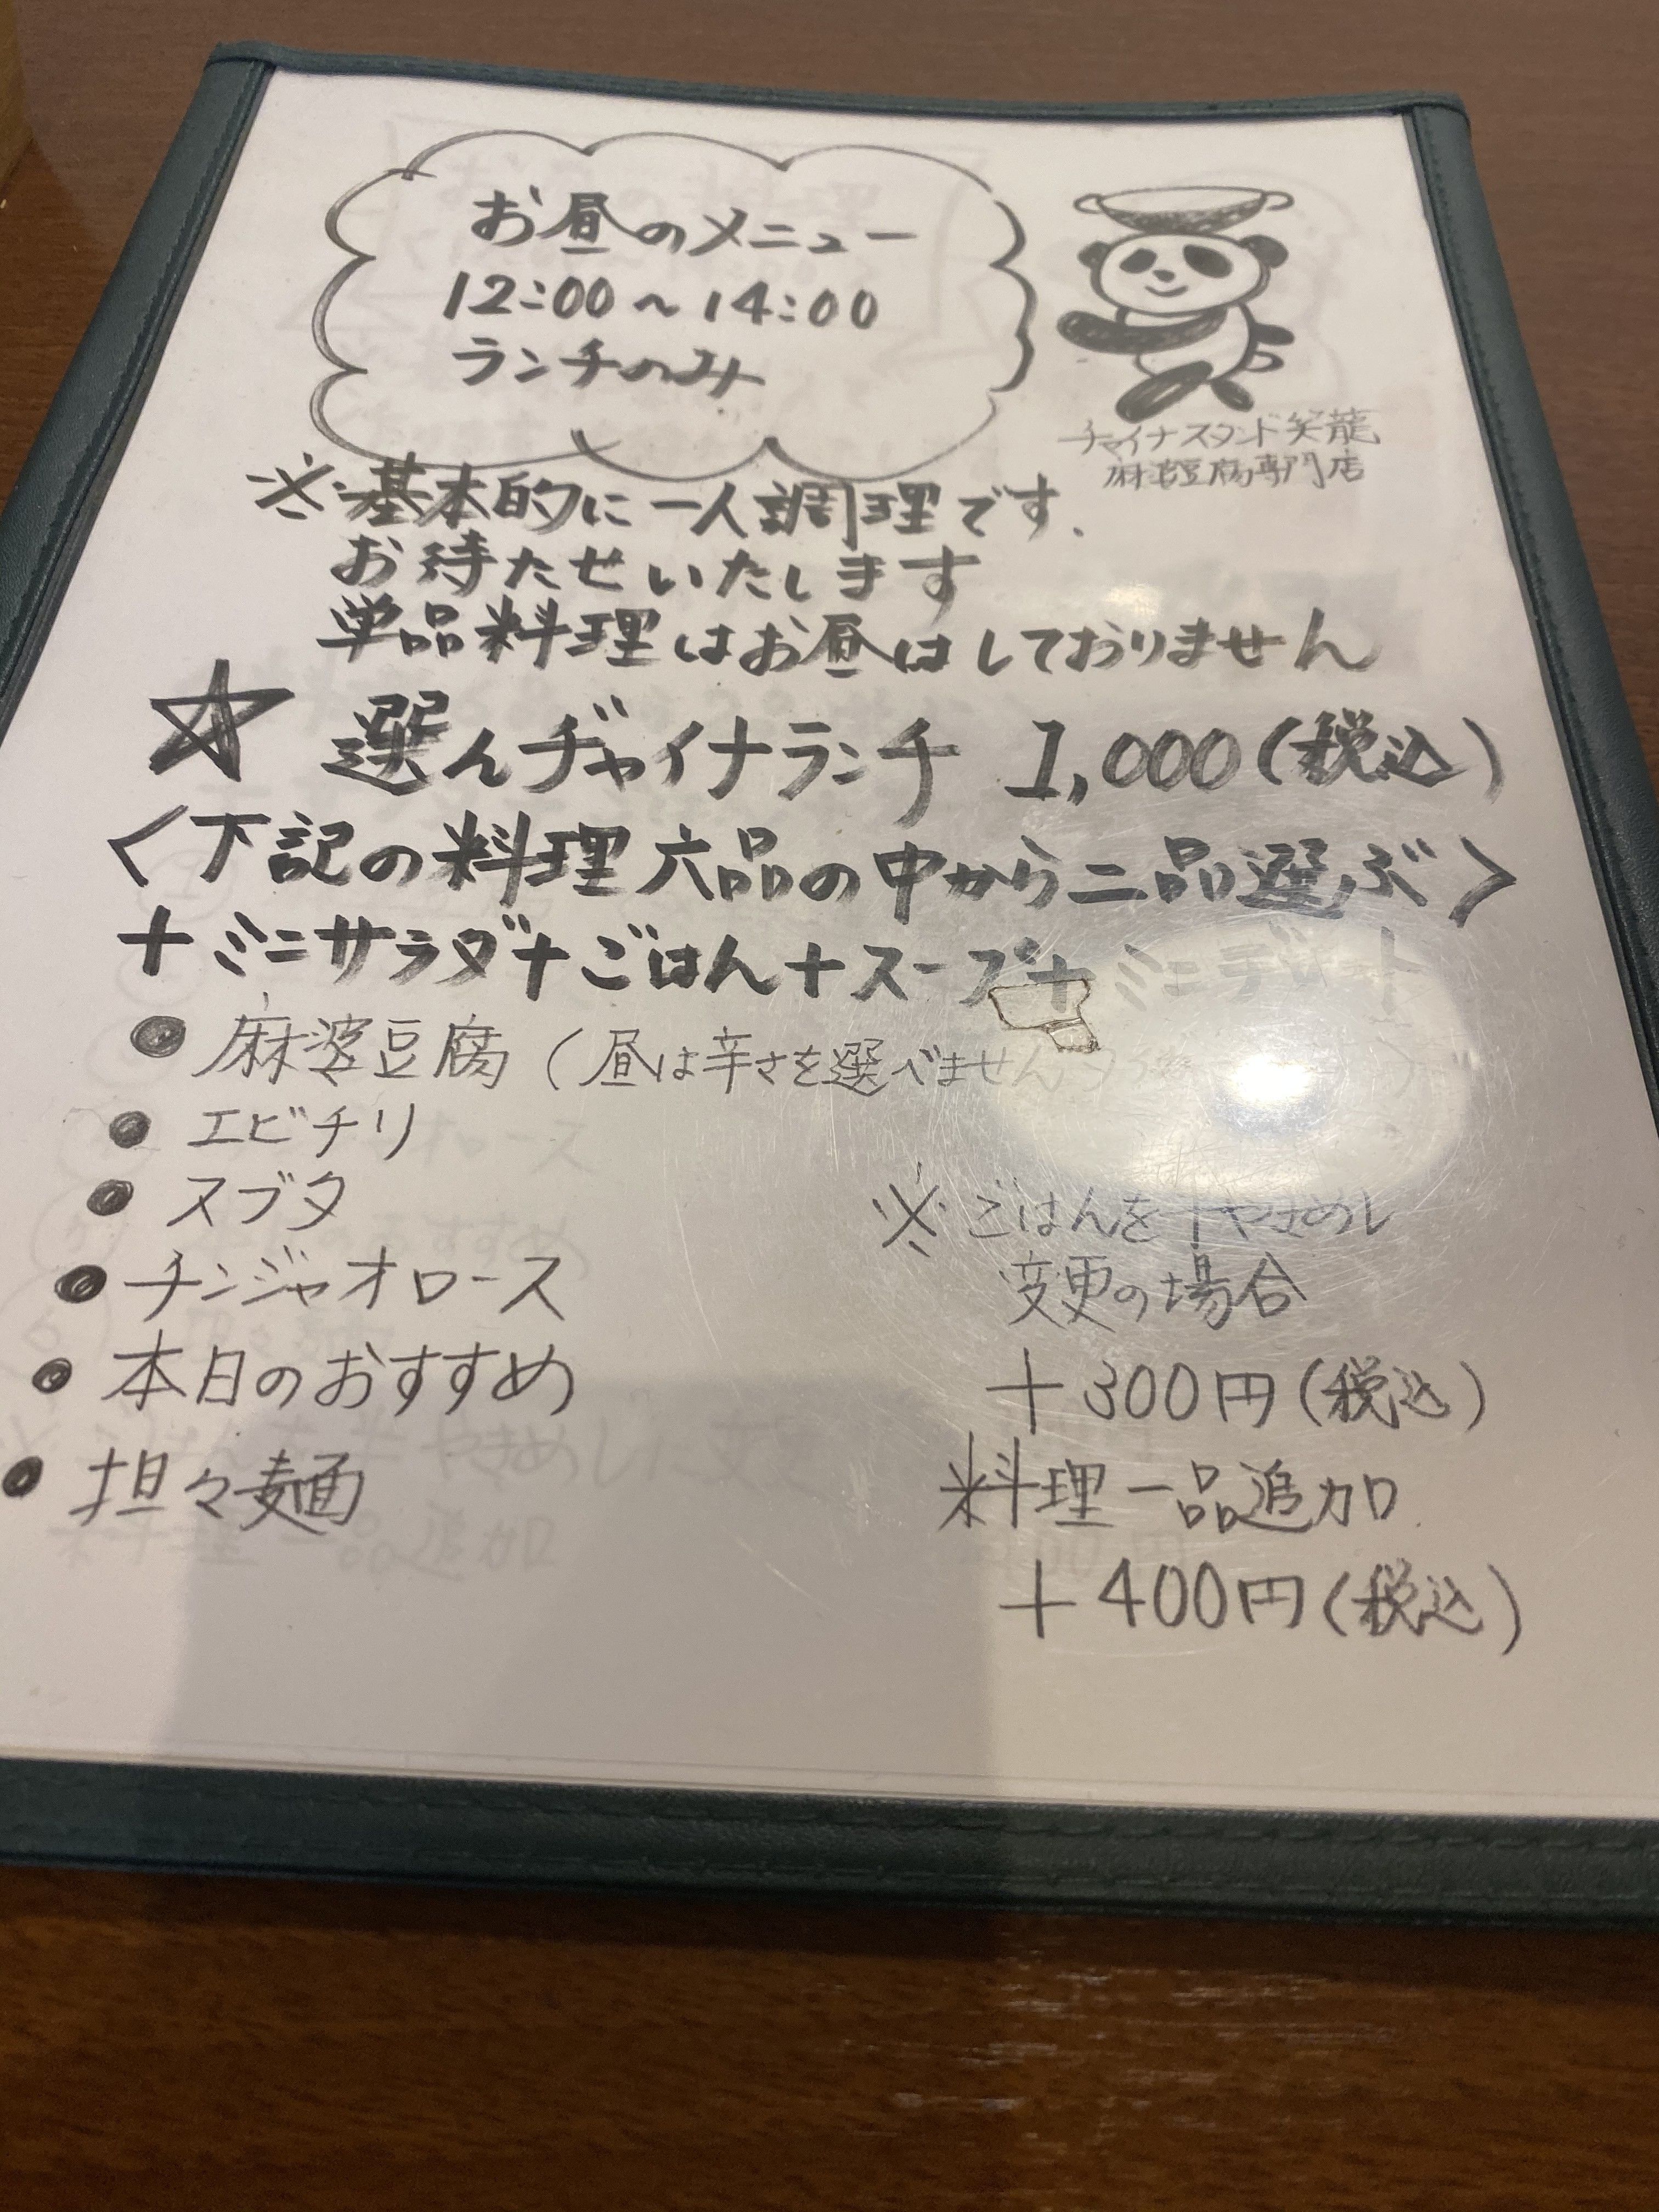 お昼のメニュー
12:00〜14:00
ランチのみ
チャイナスタンド笑龍
麻婆豆腐専門店
※基本的に一人調理です.
お待たせいたします
単品料理はお昼はしておりません
☆ 選んヂャイナランチ 1,000(税込)
〈下記の料理六品の中から二品選ぶ〉
+ミニサラダ+ごはん+スープ+ミニデザート
● 麻婆豆腐(昼は辛さを選べません
● エビチリ
● スブタ
● チンジャオロース
● 本日のおすすめ
● 担々麺
※ごはんを半やきめし
変更の場合
+300円(税込)
料理一品追加
+400円(税込)